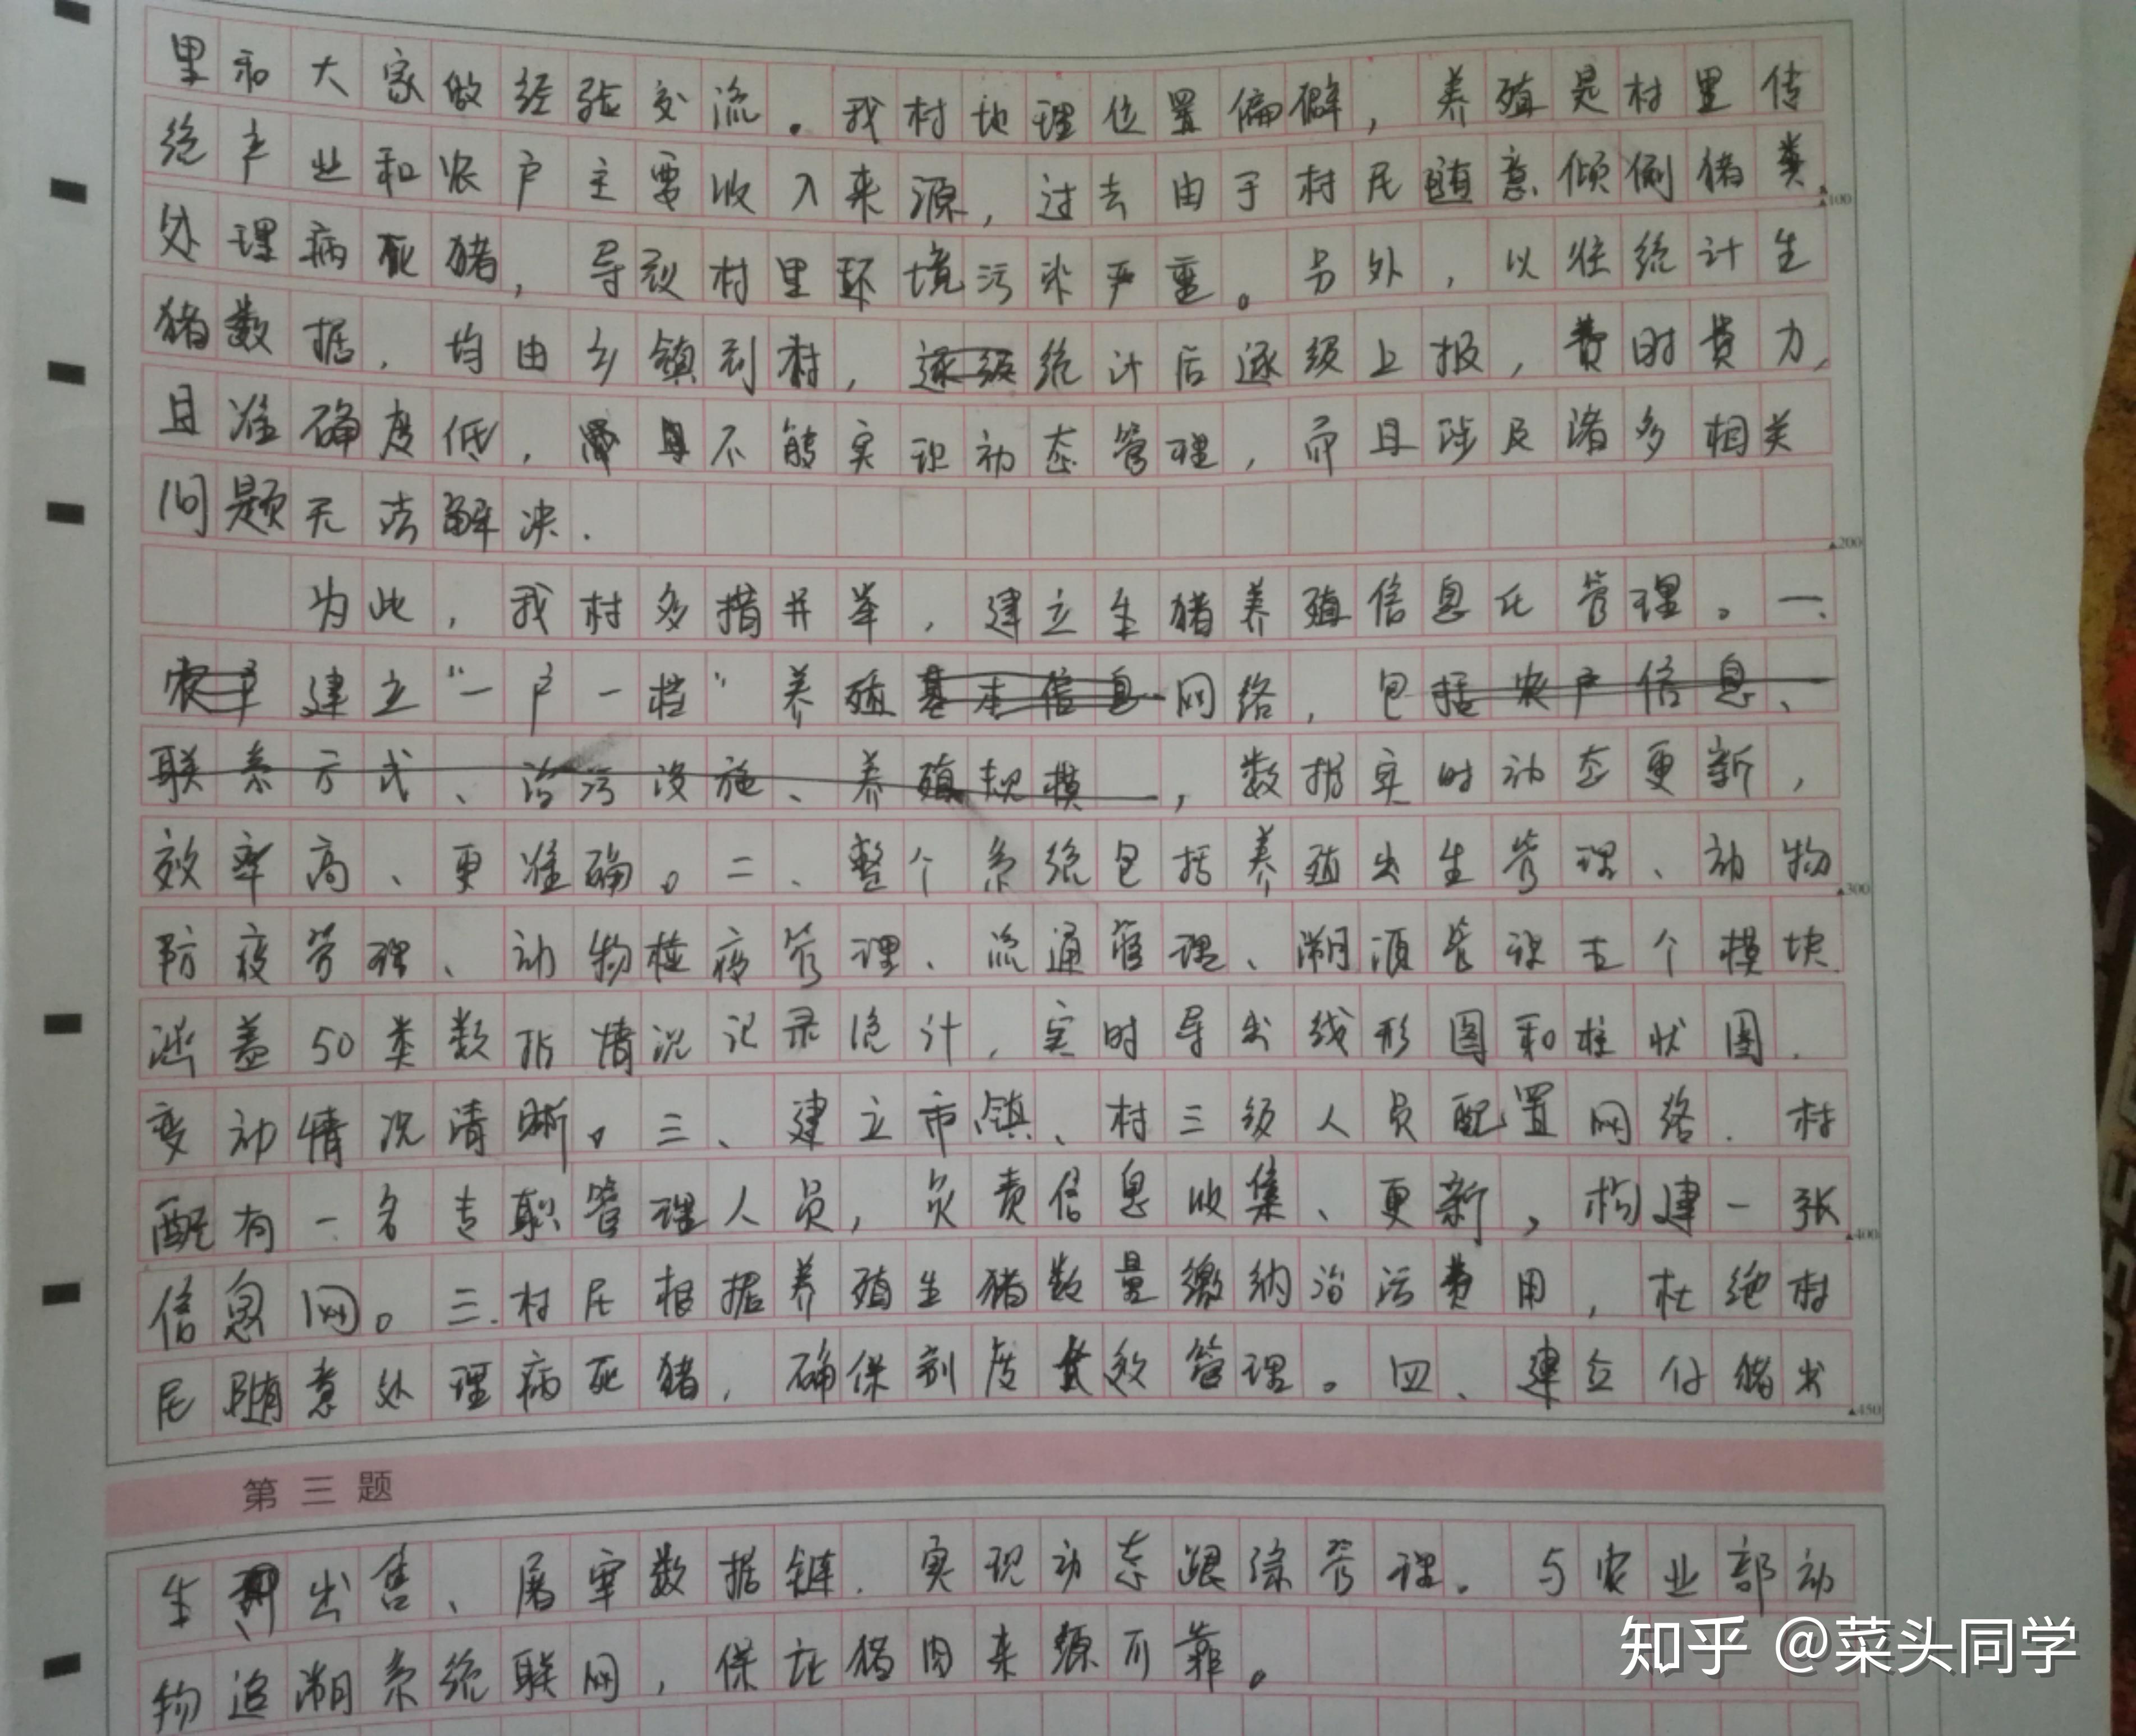 里和大家做经验交流。我村地理位置偏僻，养殖是村里传
统产业和农户主要收入来源，过去由于村民随意倾倒猪粪、
处理病死猪，导致村里环境污染严重。另外，以往统计生
猪数据，均由乡镇到村，逐级统计后逐级上报，费时费力，
且准确度低，且不能实现动态管理，而且涉及诸多相关
问题无法解决.
为此，我村多措并举，建立生猪养殖信息化管理。一、
建立“一户一档”养殖基本信息网络，包括农户信息、
联系方式、治污设施、养殖规模，数据实时动态更新，
效率高、更准确。二、整个系统包括养殖出生管理、动物
防疫管理、动物检疫管理、流通管理、溯源管理五个模块
涵盖50类数据情况记录统计，实时导出线形图和柱状图.
变动情况清晰。三、建立市、镇、村三级人员配置网络.村
配有一名专职管理人员，负责信息收集、更新，构建一张
信息网。三.村民根据养殖生猪数量缴纳治污费用，杜绝村
民随意处理病死猪，确保制度长效管理。四、建立仔猪出
第三题
生出售、屠宰数据链.实现动态跟踪管理。与农业部动
物追溯系统联网，保证猪肉来源可靠。
▲100
▲200
▲300
▲400
▲450
知乎 @菜头同学